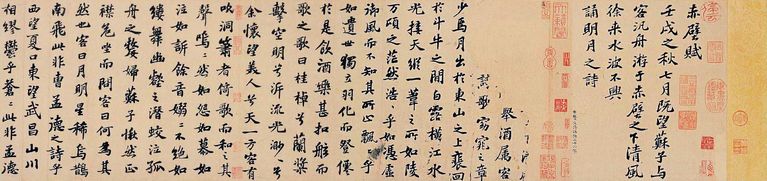 赤壁賦
壬戌之秋七月既望蘇子与
客汎舟游于赤壁之下清風
徐来水波不興
誦明月之詩
舉酒屬客
歌窈窕之章
少焉月出於東山之上裵回
於斗牛之間白露橫江水
光接天縱一葦之所如陵
萬頃之茫然浩〻乎如憑虛
御風而不知其所止飄〻乎
如遺世獨立羽化而登僊
於是飲酒樂甚扣舷而
歌之歌曰桂棹兮蘭槳
擊空明兮泝流光渺〻兮
余懷望美人兮天一方客有
吹洞簫者倚歌而和之其
聲嗚〻然如怨如慕如
泣如訴餘音嫋〻不絶如
縷舞幽壑之潛蛟泣孤
舟之嫠婦蘇子愀然正
襟危坐而問客曰何爲其
然也客曰月明星稀烏鵲
南飛此非曹孟德之詩乎
西望夏口東望武昌山川
相繆鬱乎蒼〻此非孟德